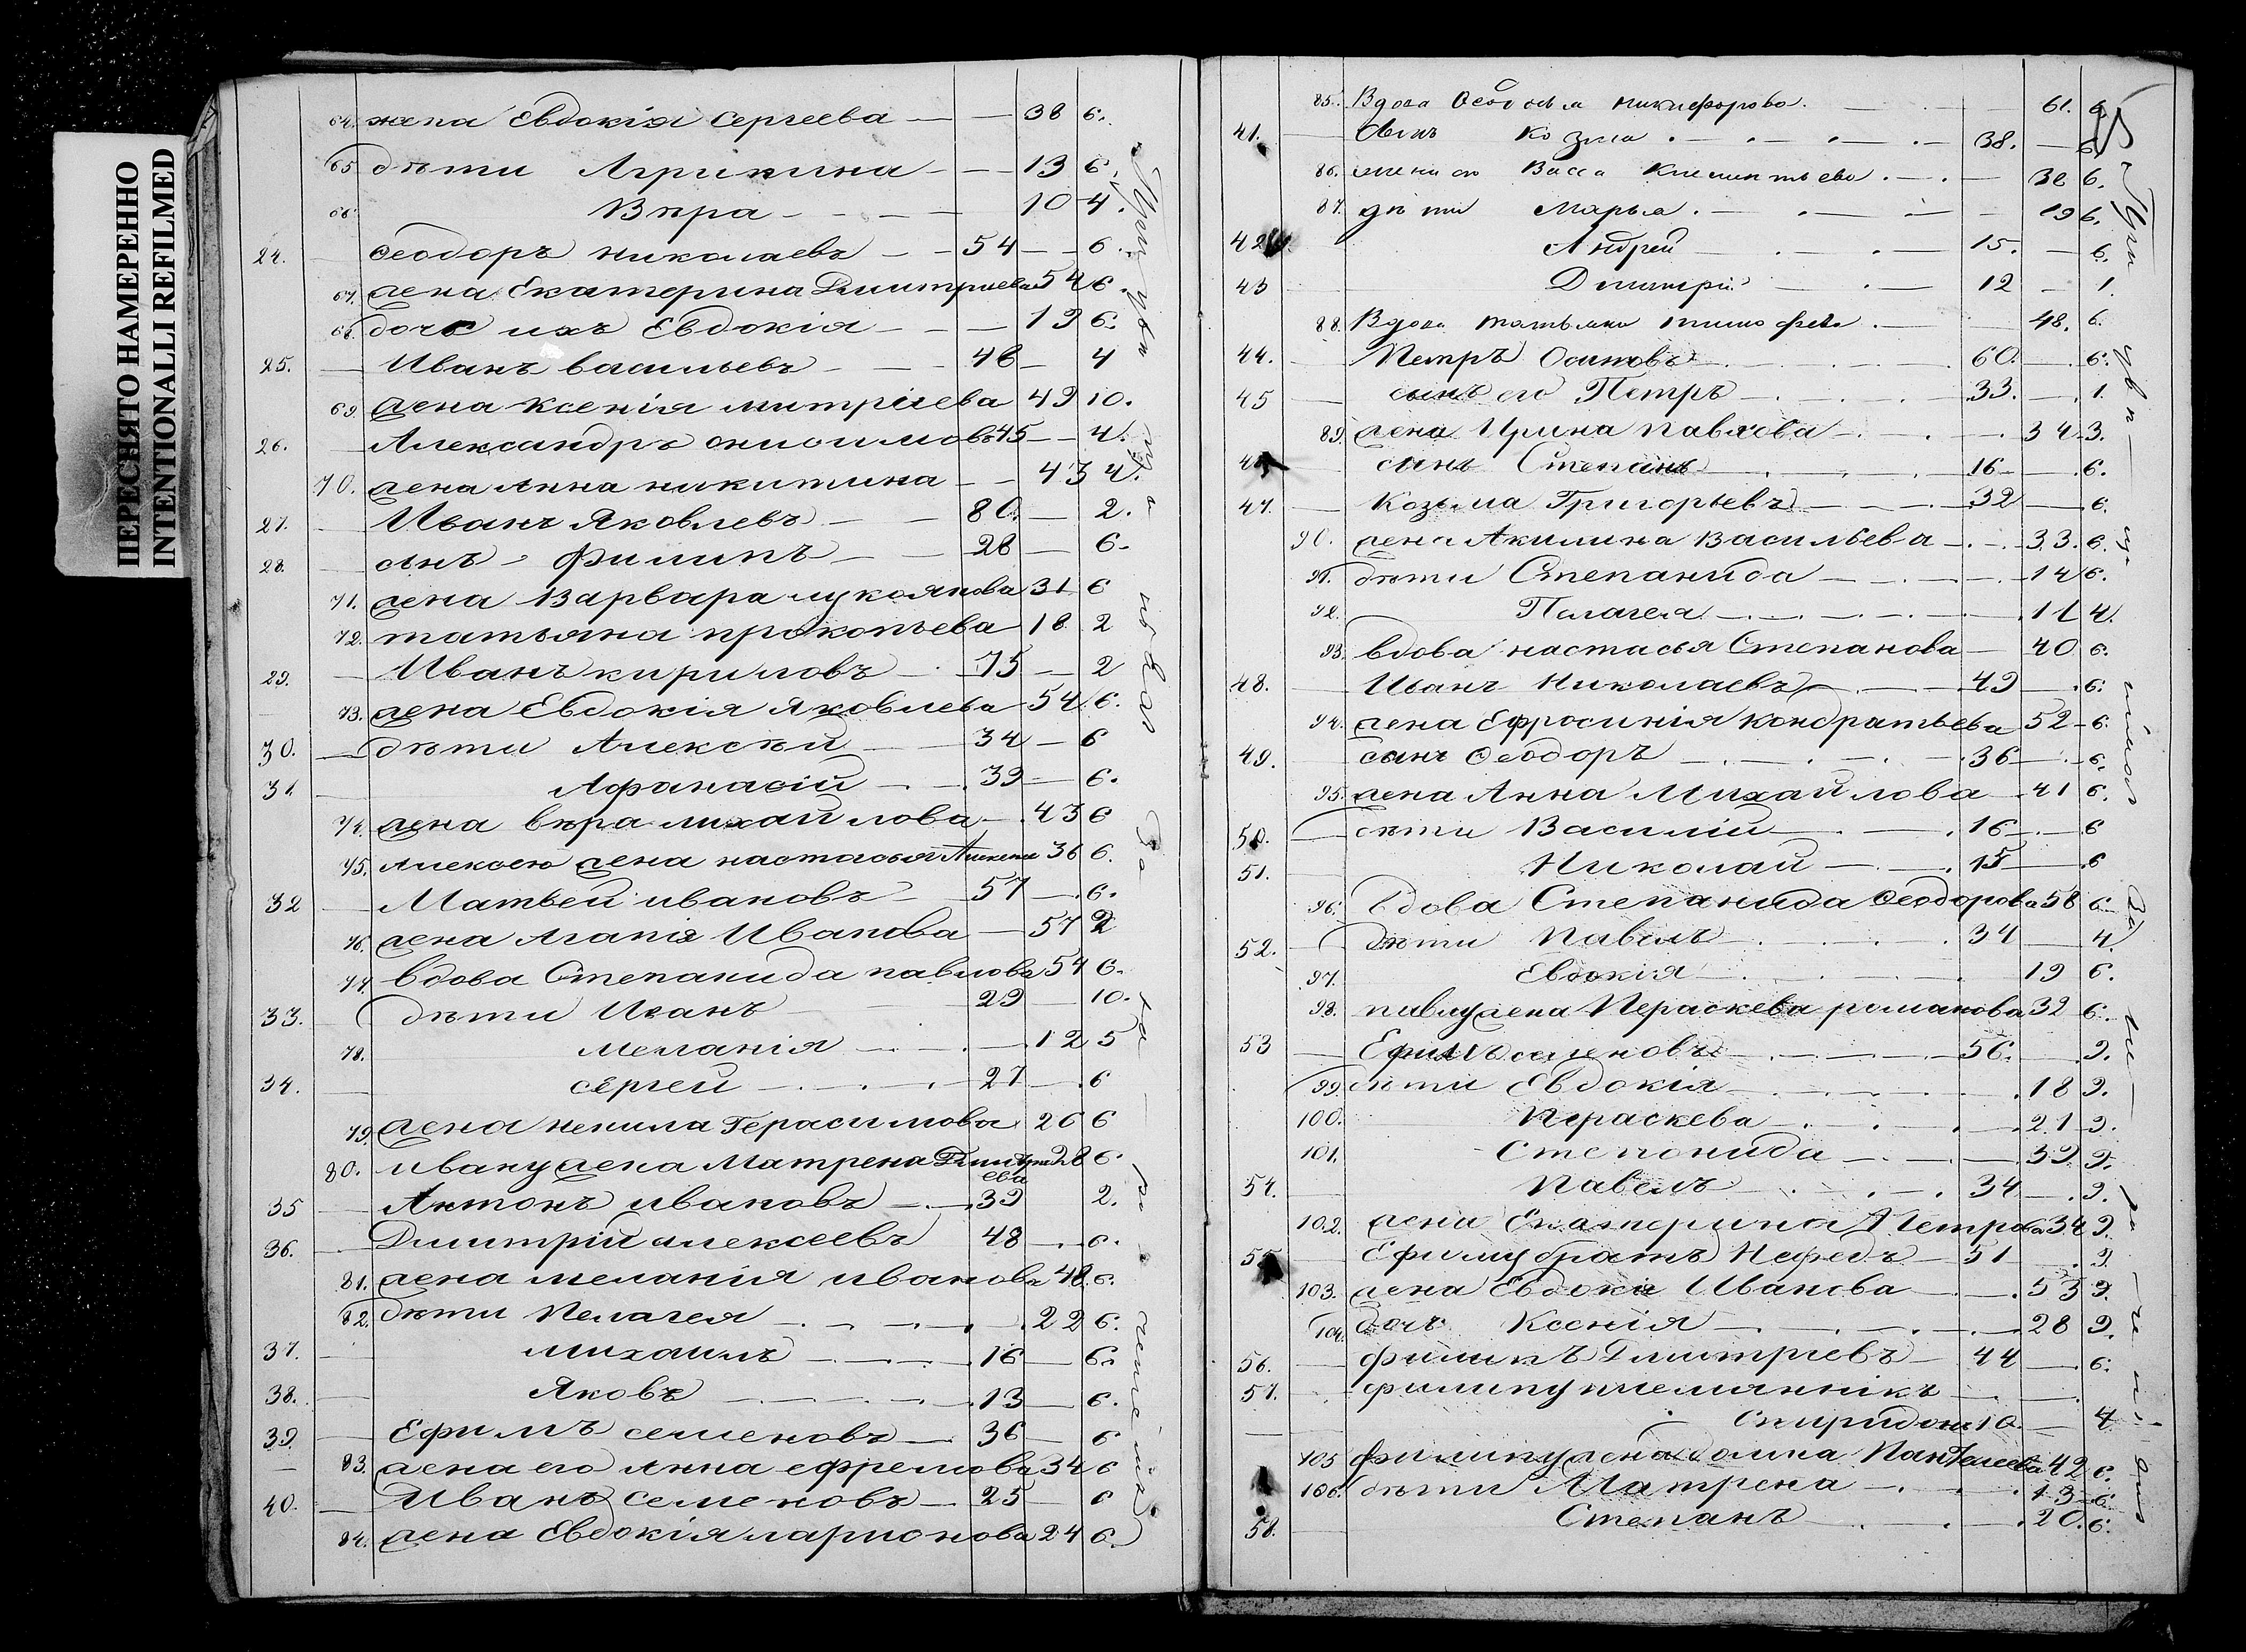 ПЕРЕСНЯТО НАМЕРЕННО
INTENTIONALLI REFILMED
64. жена Евдокія Сергеева — — 38 6.
65 дѣти Агрипина — — 13 6.
66. Вѣра — — — 10 4.
24. Ѳеодоръ Николаевъ — 54 — 6.
67. жена Екатерина Дмитриева 54 6.
68. дочь ихъ Евдокія — — — 19 6.
25. Иванъ Васильевъ — — 48 — 4
69. жена Ксенія Митріева 49 10.
26. Александръ Онисимовъ 45 — 4.
70. жена Анна Никитина — — 43 4.
27. Иванъ Яковлевъ — — 80. — 2.
28. сынъ Филипъ — 28 — 6.
71. жена Варвара 31 6
72. Татьяна Прокопьева 18 2
29. Иванъ Кириловъ — 75 — 2
73. жена Евдокія Яковлева 54 6.
30. дѣти Алексѣй — 34 — 6
31 Афанасій — 39 — 6.
74. жена Вѣра Михайлова — 43 6
75. Алексею жена Настасья 36 6.
32 Матвей Ивановъ — 57 — 6.
76. жена Агапія Иванова — 57 2
77. Вдова Степанида Павлова 54 6.
33. дѣти Иванъ 29 10.
78. Меланія — — 12 5
34. Сергей — — 27 — 6
79. жена Ненила Герасимова 26 6
80. Ивану жена Матрена Дмитриева 28 6
35 Антонъ Ивановъ — 39 2.
36. Дмитрій Алексеевъ 48 — 6.
81. жена Меланія Иванова 48 6.
82. дѣти Пелагея — — 22 6.
37. Михаилъ — — 16 — 6.
38. Яковъ — — 13 — 6.
39. Ефимъ Семеновъ — 36 — 6
83. жена его Анна Ефремова 34 6
40. Иванъ Семеновъ — 25 — 6
84. жена Евдокія Ларионова 24 6.
85. Вдова Ѳеодосья Никифорова. — — 61. 6.
41. Сынъ Козма — — 38. — 6.
86. жена его Васса Климентьева. — 38 6.
87. дѣти Марья. — — 19 6.
42 Андрей — — 15. — 6.
43 Дмитрій — — 12 — 1.
88. Вдова Татьяна Тимофеева. — 48. 6.
44. Петръ Осиповъ — — 60. — 6.
45 сынъ его Петръ — — 33. — 1.
89. жена Ирина Павлова — — 34 3.
46 сынъ Степанъ — — 16 — 6.
47. Козьма Григорьевъ — — 32 — 6.
90. жена Акилина Васильева — 33. 6.
91. дѣти Степанида — — 14 6.
92. Пелагея — — 11 4.
93. вдова Настасья Степанова — 40 6.
48. Иванъ Николаевъ — — 49 — 6.
94. жена Ефросинія Кондратьева 52 — 6.
49. сынъ Ѳеодоръ — — 36 — 6.
95. жена Анна Михайлова — 41 6.
50. дѣти Василій — — 16 — 6
51. Николай — — 15 — 6
96. Вдова Степанида Ѳеодорова 58 6
52. дѣти Павелъ — — 34 — 4.
97. Евдокія — — 19 6.
98. Павлу жена Пераскева Романова 32 6.
53 Ефимъ Семеновъ — — 56. — 9.
99. дѣти Евдокія — — 18 9.
100. Пераскева — — 21 9.
101. Степонида — — 39 9.
54. Павелъ — — 34 — 9.
102. жена Екатерина Петрова 34 9.
55 Ефиму братъ Нефедъ — 51 — 9.
103. жена Евдокія Иванова — 53 9.
104. дочь Ксенія — — 28 9.
56. Филипъ Дмитріевъ — 44 — 6.
57. Филипу племянникъ — —
Спиридонъ 10. — 4
105 Филипу жена Домна Пантелеева 42 6.
106. дѣти Матрена — — 13 6.
58. Степанъ — — 20. 6.